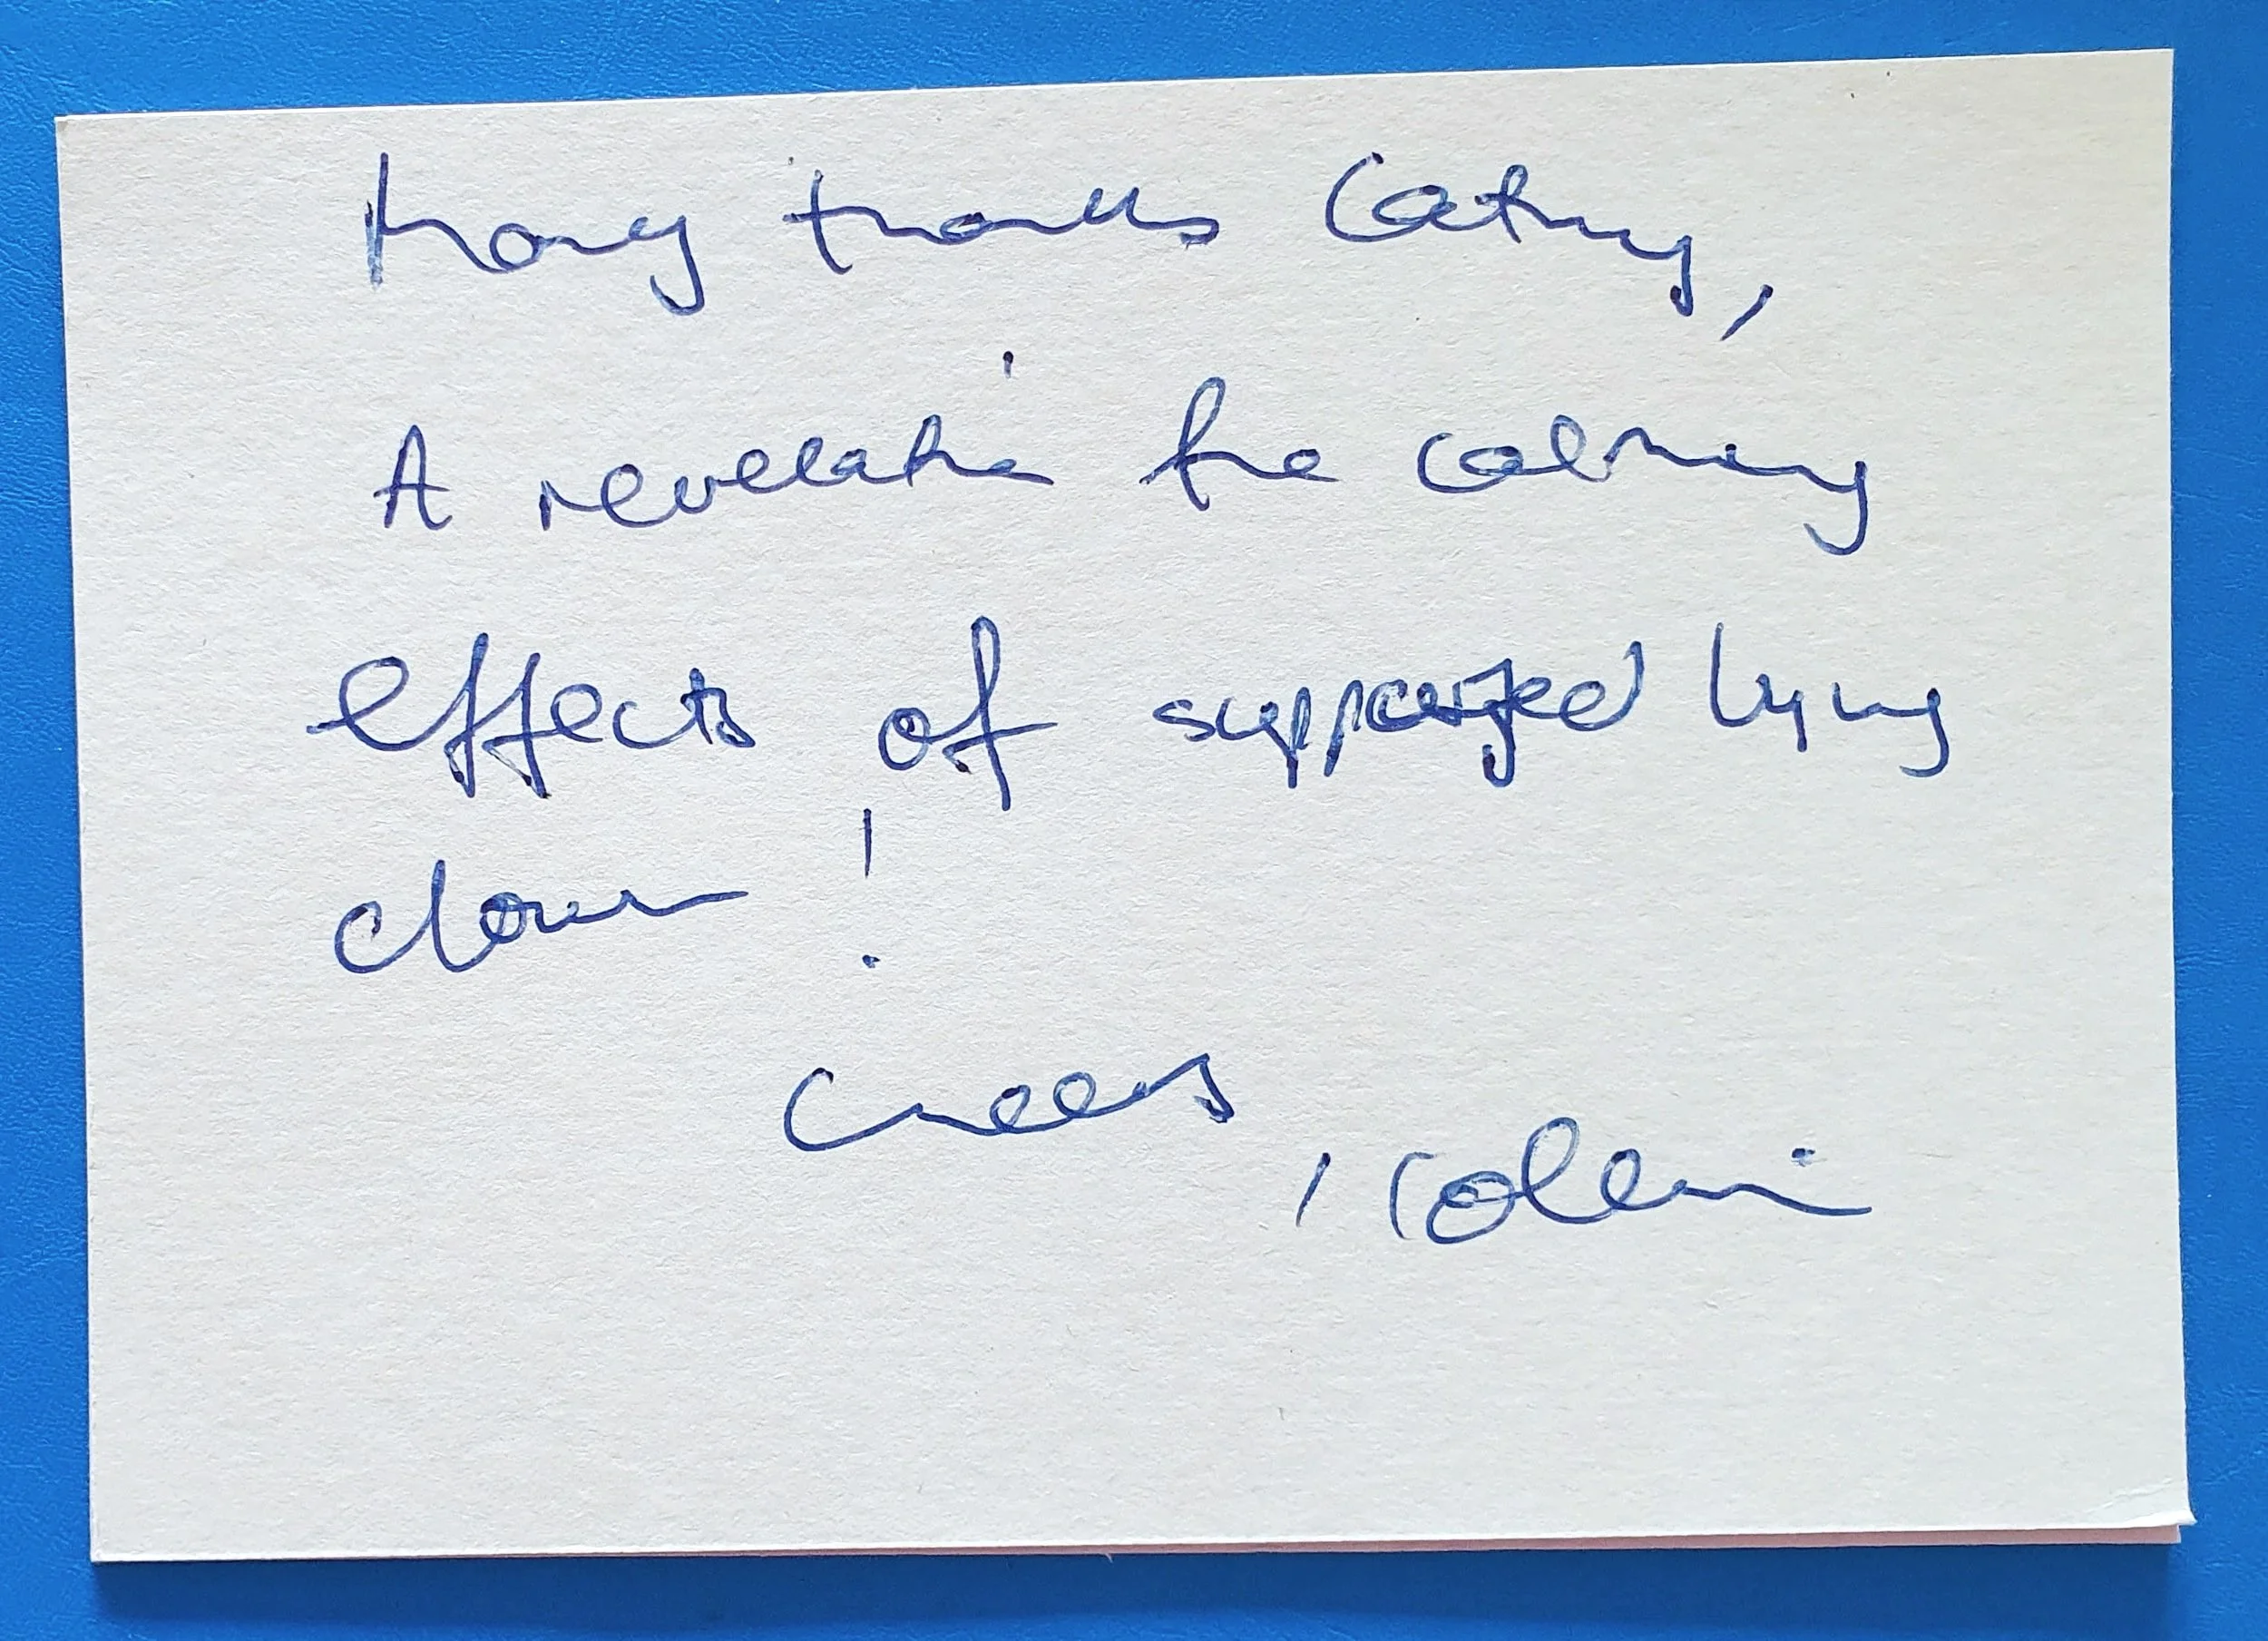 Many thanks Cathy,
A revelation the calming
effects of supported lying
down!
Cheers
, Colin